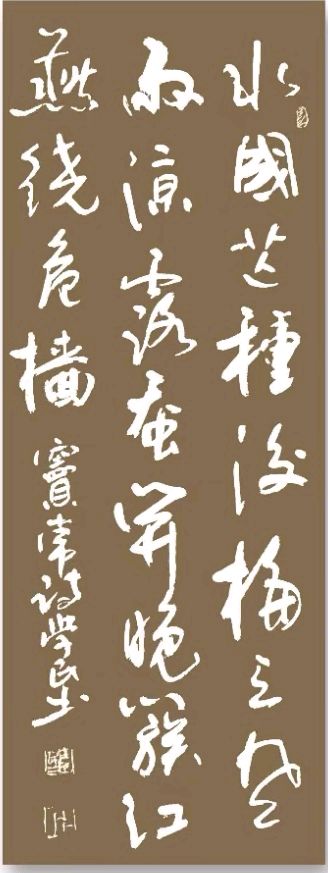 水國芒種後梅天風
雨涼露蚕開晚簇江
燕绕危檣
竇常詩學民书